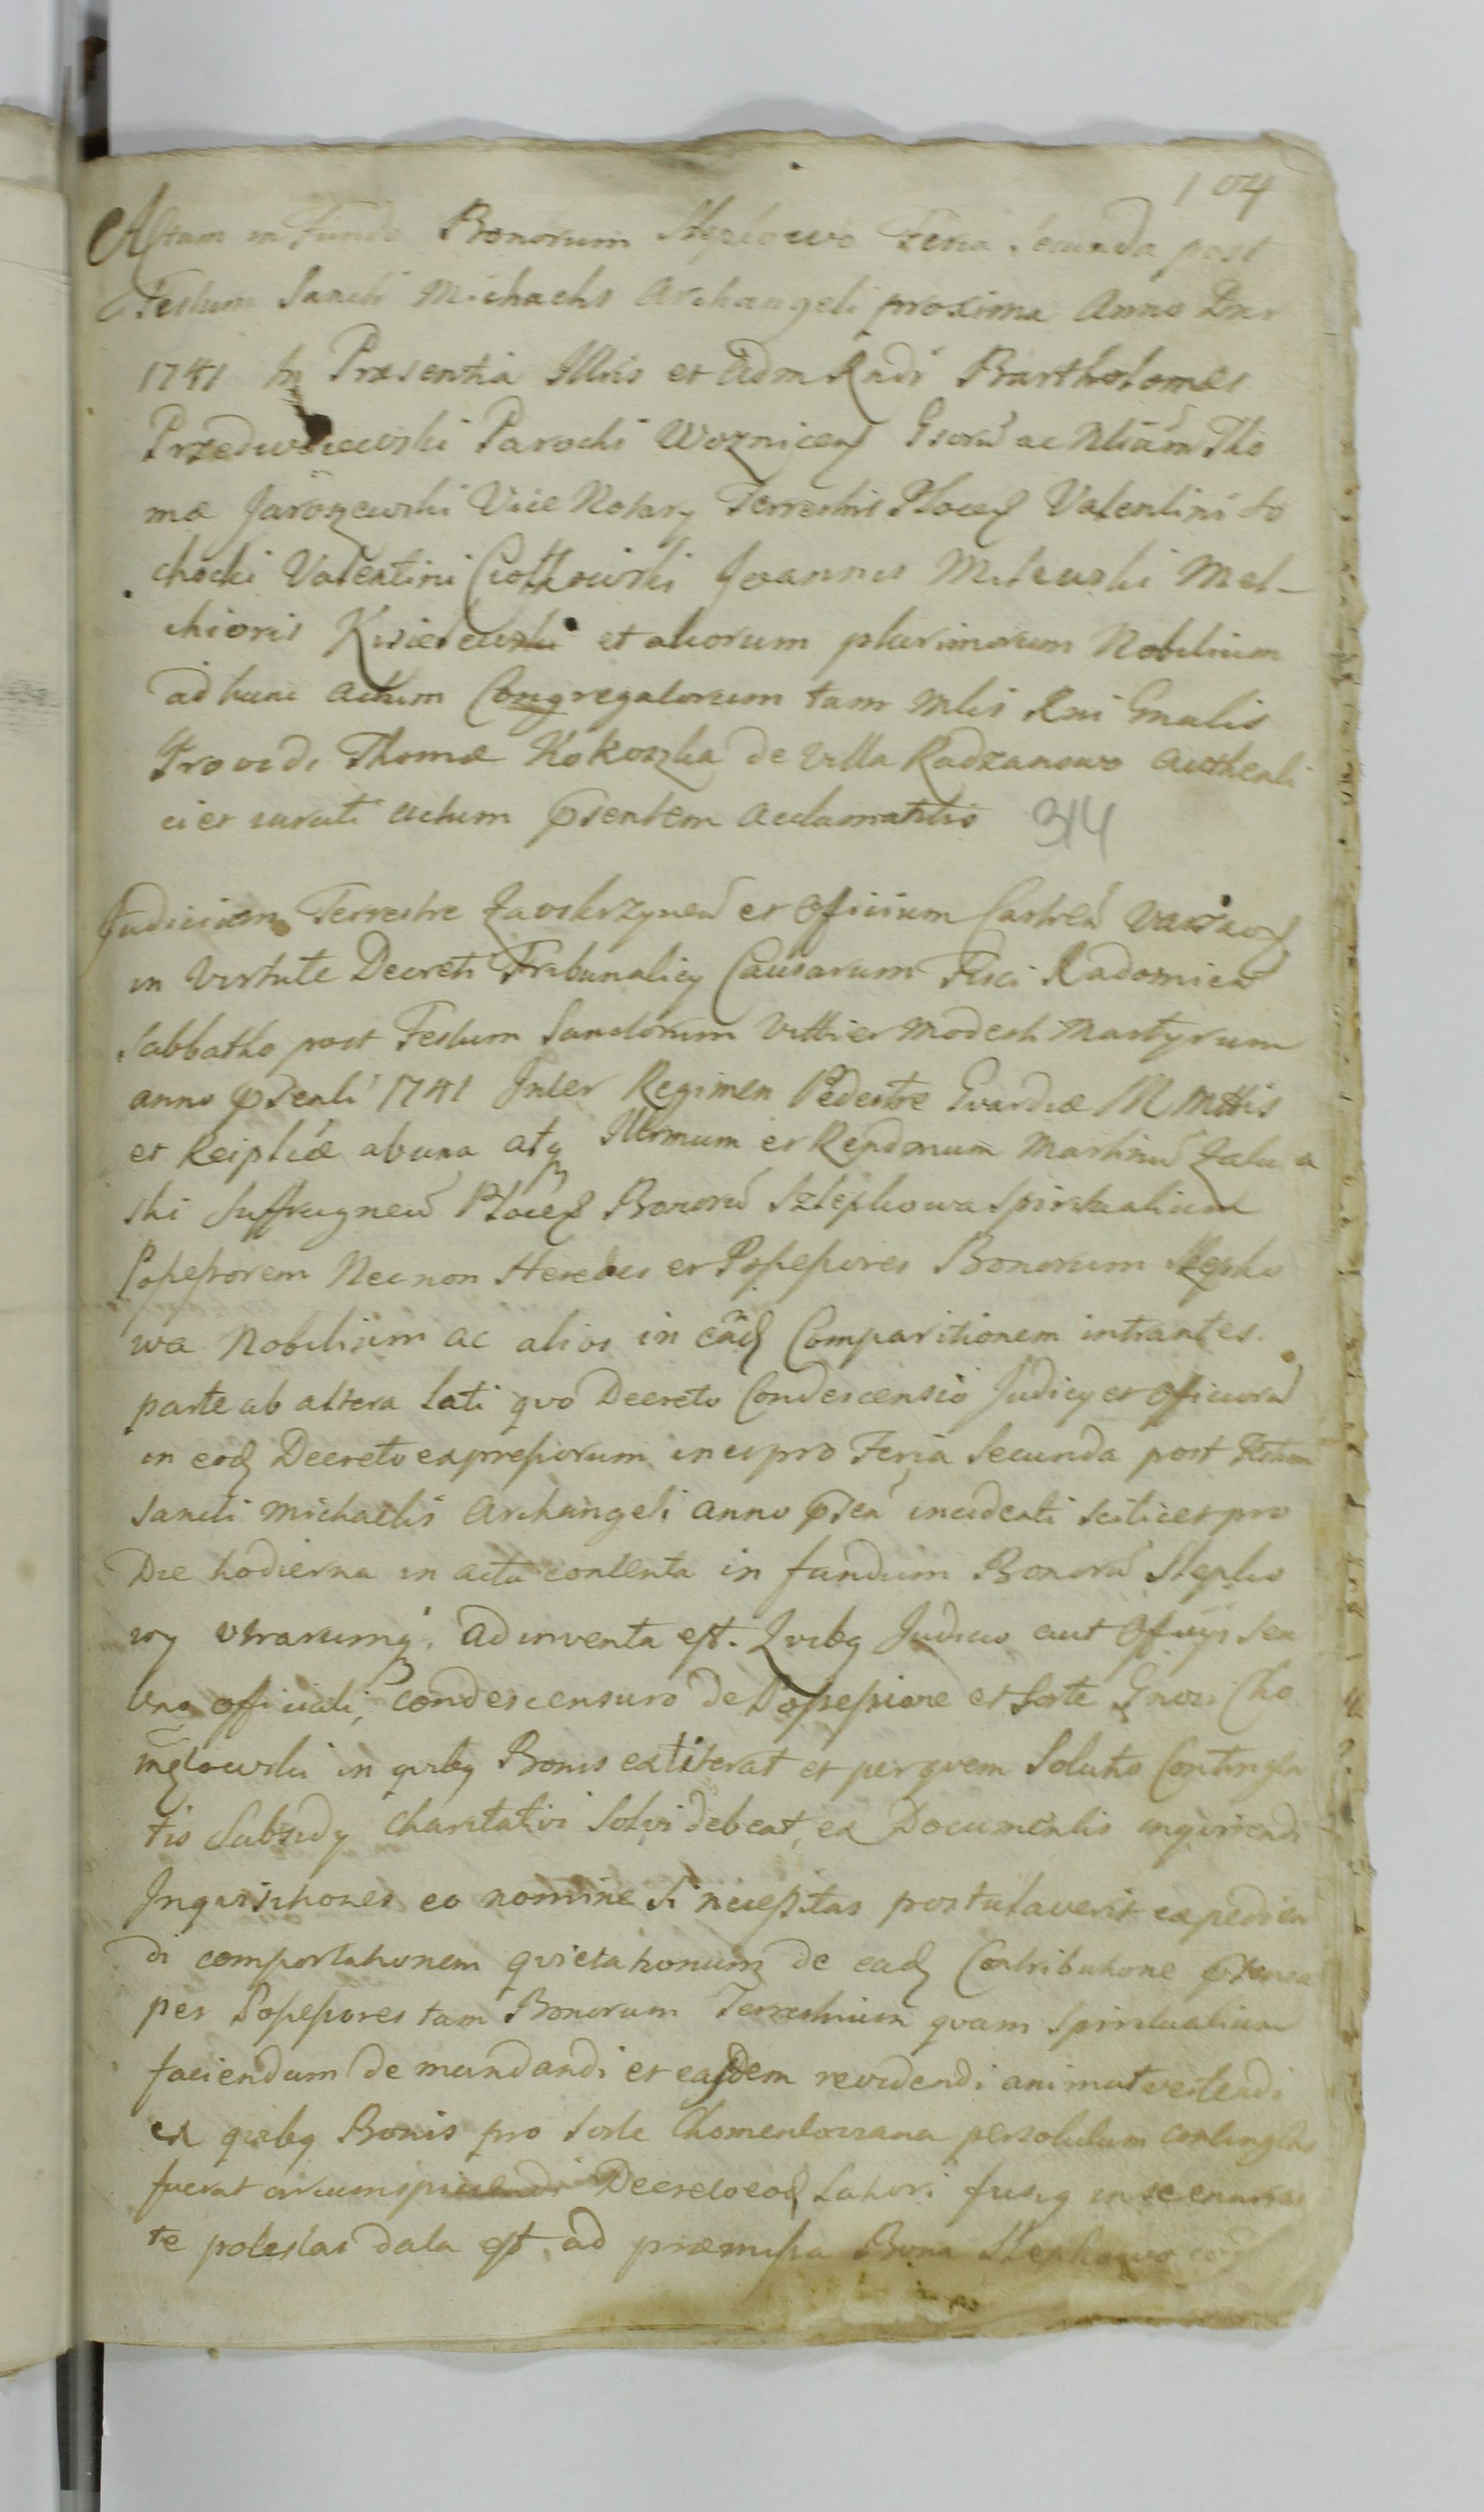 104
Actum in Fundo Bonorum Slepkowo Feria Secunda post
Festum Sancti Michaelis Archangeli proxima Anno Dni
1741 In Præsentia Illris et Adm Rndi Bartholomæi
Przedwoiewski Parochi Woznicen Gsorū ac Nliūm Tho
mæ Jaroszewski Vice Notarii Terrestris Plocen Valentini So
chocki Valentini Ciothowski Joannis Milewski Mel-
chioris Kisielewski et aliorum plurimorum Nobilium
ad hunc actum Congregatorum tam Mlis Rni Gnalis
Providi Thomæ Kokoszka de Villa Radzanowo authenti
ci et iurati actum pñsentem acclamantis 314
Judicium Terrestre Zawskrzynen et Officium Castren Varsavien
in Virtute Decreti Tribunalicii Causarum Fisci Radomien
Sabbatho post Festum Sanctorum Vitti et Modesti Martyrum
anno pñsenti 1741 Inter Regimen Pedestre Gvardiæ M Mttis
et Reiplicæ ab una atq Illrmum et Rendmum Martinū Zalu
ski Suffragneū Plocen Bonorū Szlepkowa Spiritualium
Possessorem Necnon Heredes et Possessores Bonorum Slepko
wa Nobilium ac alios in eād Comparitionem intrantes
parte ab altera Lati qvo Decreto Condescensio Judicii et Officiorū
in eod Decreto expressorum in et pro Feria Secunda post Festum
Sancti Michaelis Archangeli anno pñsen incidenti scilicet pro
Die hodierna in acta contenta in fundum Bonorū Slepko
wy utrarumq, adinventa est. Qvibq Judicio aut Officiis seu
Uno officiali, condescensuro de Possessione et Sorte Gnosi Cho
mętowski in qvibq Bonis extiterat et per qvem Solutio Contingen
tis Subsidy Charitativi Solvi debeat, ex Documentis inqvirendi
Inqvisitiones eo nomine si necessitas postulaverit expedien
di comportationem qvietationum de ead Contributione pñtensa
per Possessores tam Bonorum Terrestrium qvam Spiritualium
faciendum demandandi et easdem revidendi animatvertendi
ex qvibq Bonis pro Sorte Chomentowiana persolutum contingens
fuerat circumspiciendi Decreto eod Latiori fusiq in se enarran
te potestas data est, ad præmissa Bona Slepkowo